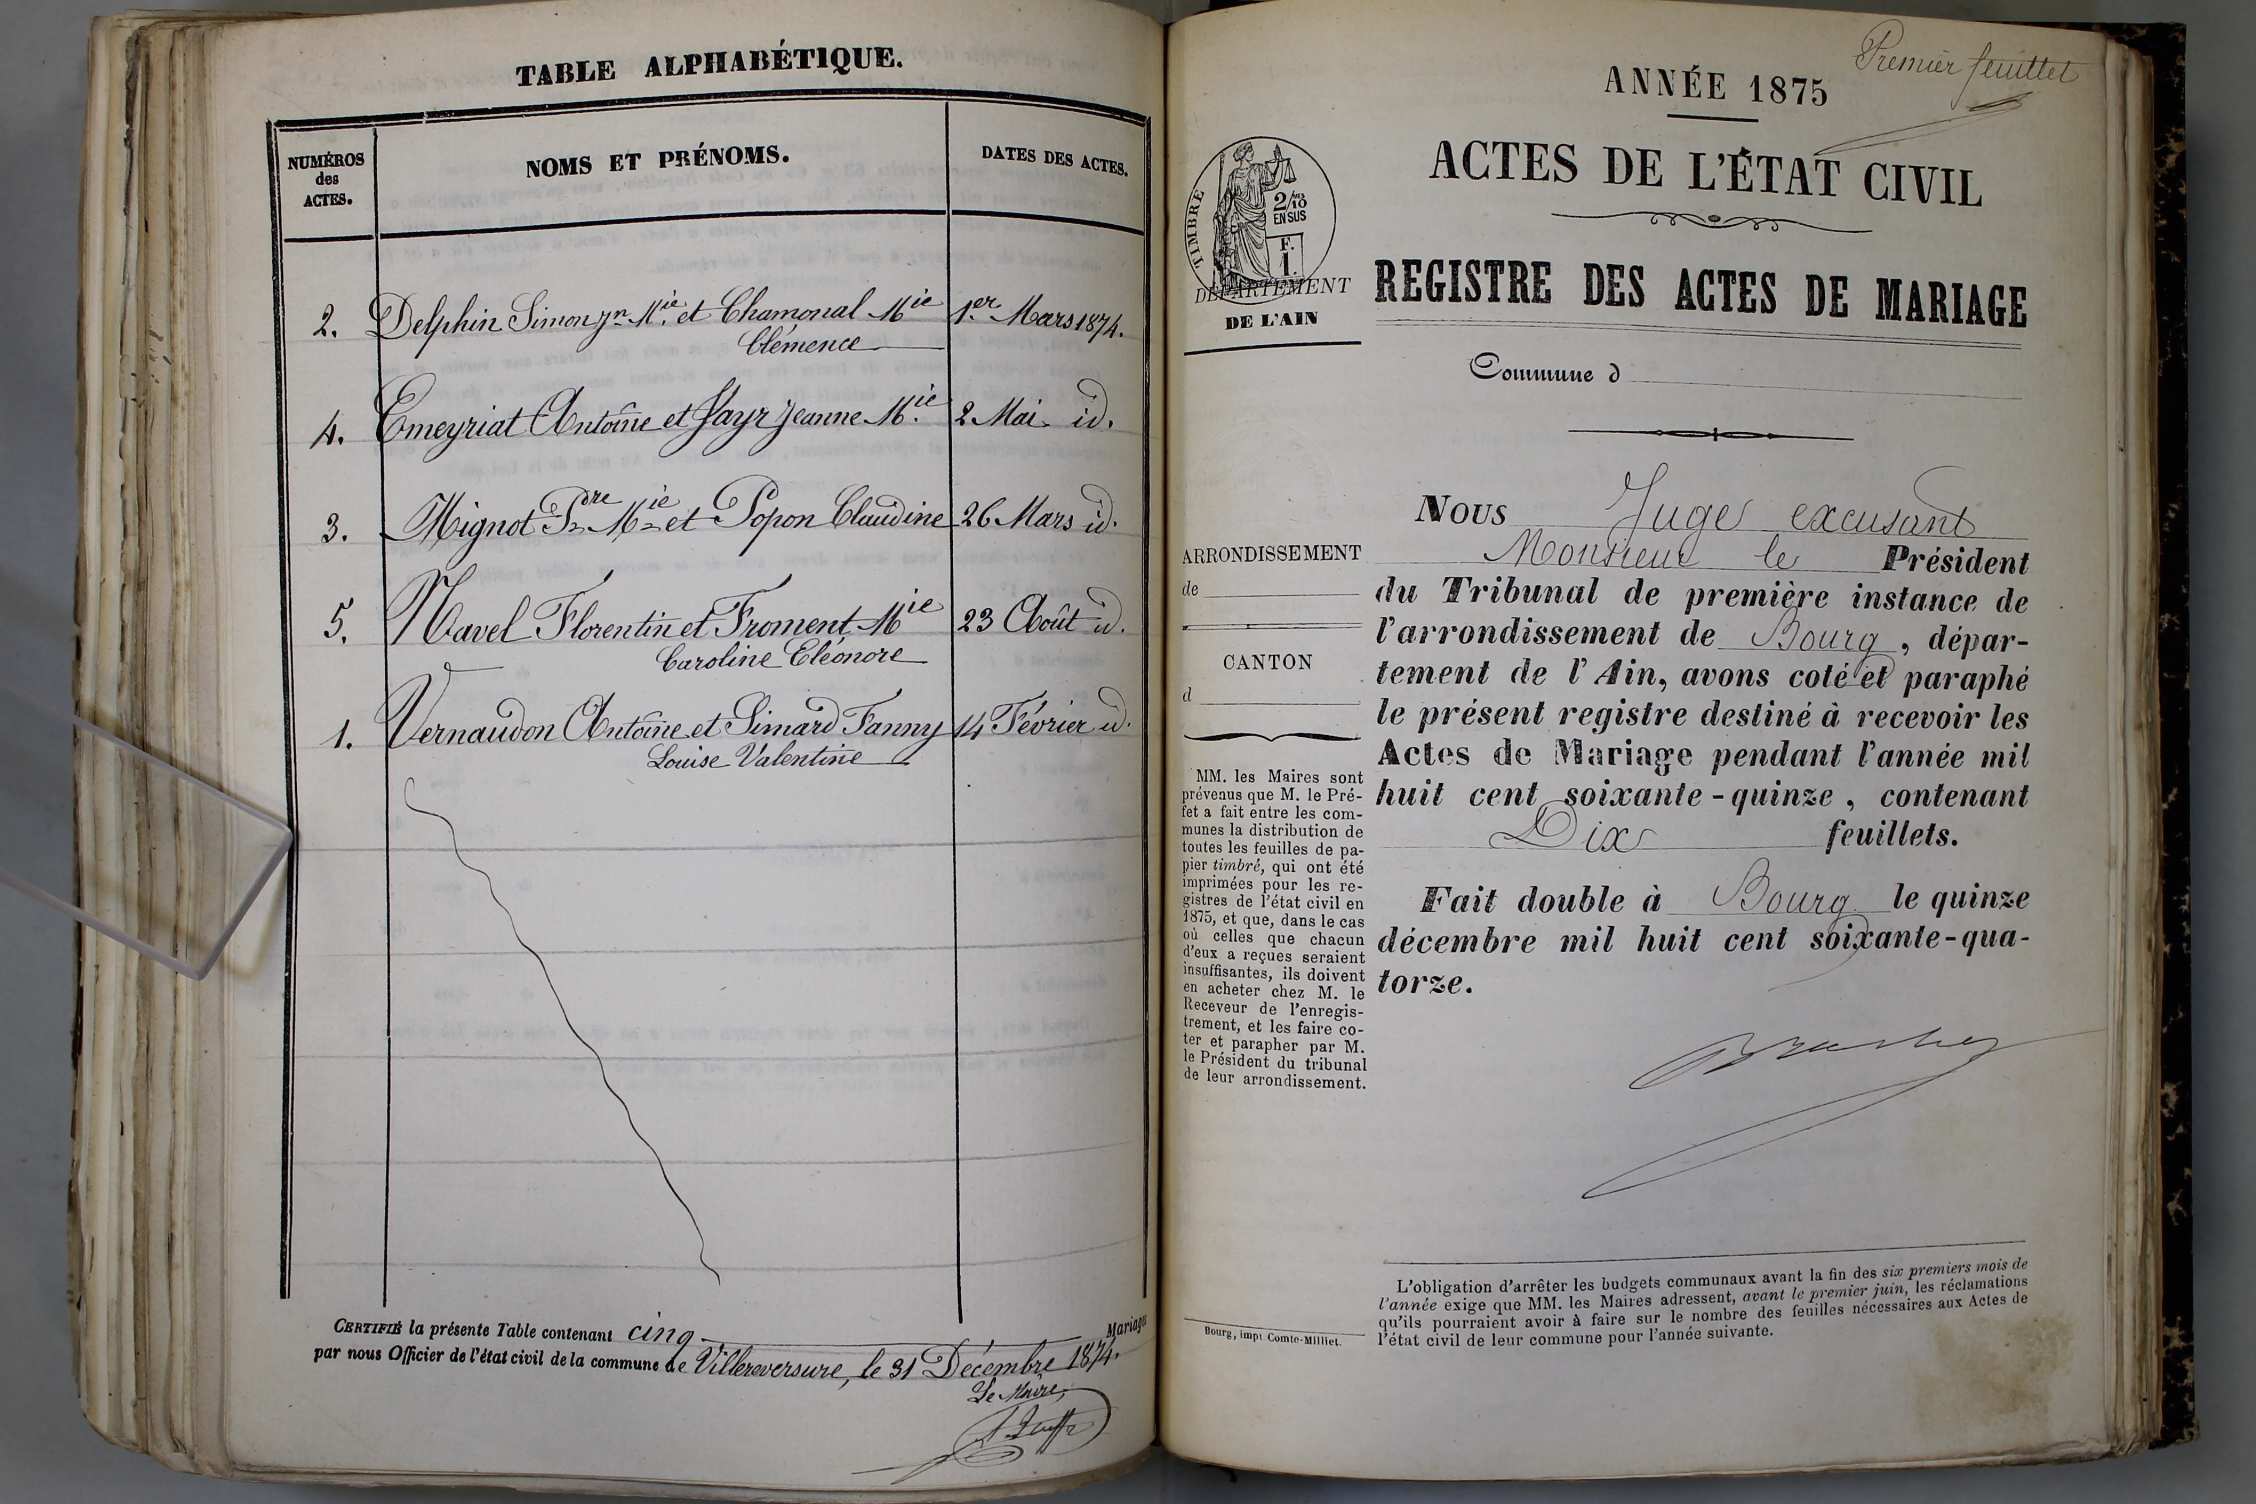 TABLE ALPHABÉTIQUE.
NUMÉROS des ACTES.
NOMS ET PRÉNOMS.
DATES DES ACTES.
2. Delphin Simon Jn. Mie. et Chamonal Mie 1er Mars 1874.
Clémence
4. Emeyriat Antoine et Jayr Jeanne Mie. 2 Mai id.
3. Mignot Pre Mie et Popon Claudine 26 Mars id.
5. Navel Florentin et Froment Mie 23 Août id.
Caroline Eléonore
1. Vernaudon Antoine et Simard Fanny 14 Février id.
Louise Valentine
CERTIFIÉ la présente Table contenant cinq Mariages
par nous Officier de l'état civil de la commune de Villereversure, le 31 Décembre 1874.
Le Maire,
Premier feuillet
ANNÉE 1875
ACTES DE L'ÉTAT CIVIL
TIMBRE
2/10
EN SUS
F.
1.
DÉPARTEMENT
DE L'AIN
REGISTRE DES ACTES DE MARIAGE
Commune d
ARRONDISSEMENT
de
CANTON
d
MM. les Maires sont
prévenus que M. le Pré-
fet a fait entre les com-
munes la distribution de
toutes les feuilles de pa-
pier timbré, qui ont été
imprimées pour les re-
gistres de l'état civil en
1875, et que, dans le cas
où celles que chacun
d'eux a reçues seraient
insuffisantes, ils doivent
en acheter chez M. le
Receveur de l'enregis-
trement, et les faire co-
ter et parapher par M.
le Président du tribunal
de leur arrondissement.
Bourg, impr Comte-Milliet.
NOUS Juge excusant
Monsieur le Président
du Tribunal de première instance de
l'arrondissement de Bourg, dépar-
tement de l'Ain, avons coté et paraphé
le présent registre destiné à recevoir les
Actes de Mariage pendant l'année mil
huit cent soixante-quinze, contenant
Dix feuillets.
Fait double à Bourg le quinze
décembre mil huit cent soixante-qua-
torze.
L'obligation d'arrêter les budgets communaux avant la fin des six premiers mois de
l'année exige que MM. les Maires adressent, avant le premier juin, les réclamations
qu'ils pourraient avoir à faire sur le nombre des feuilles nécessaires aux Actes de
l'état civil de leur commune pour l'année suivante.